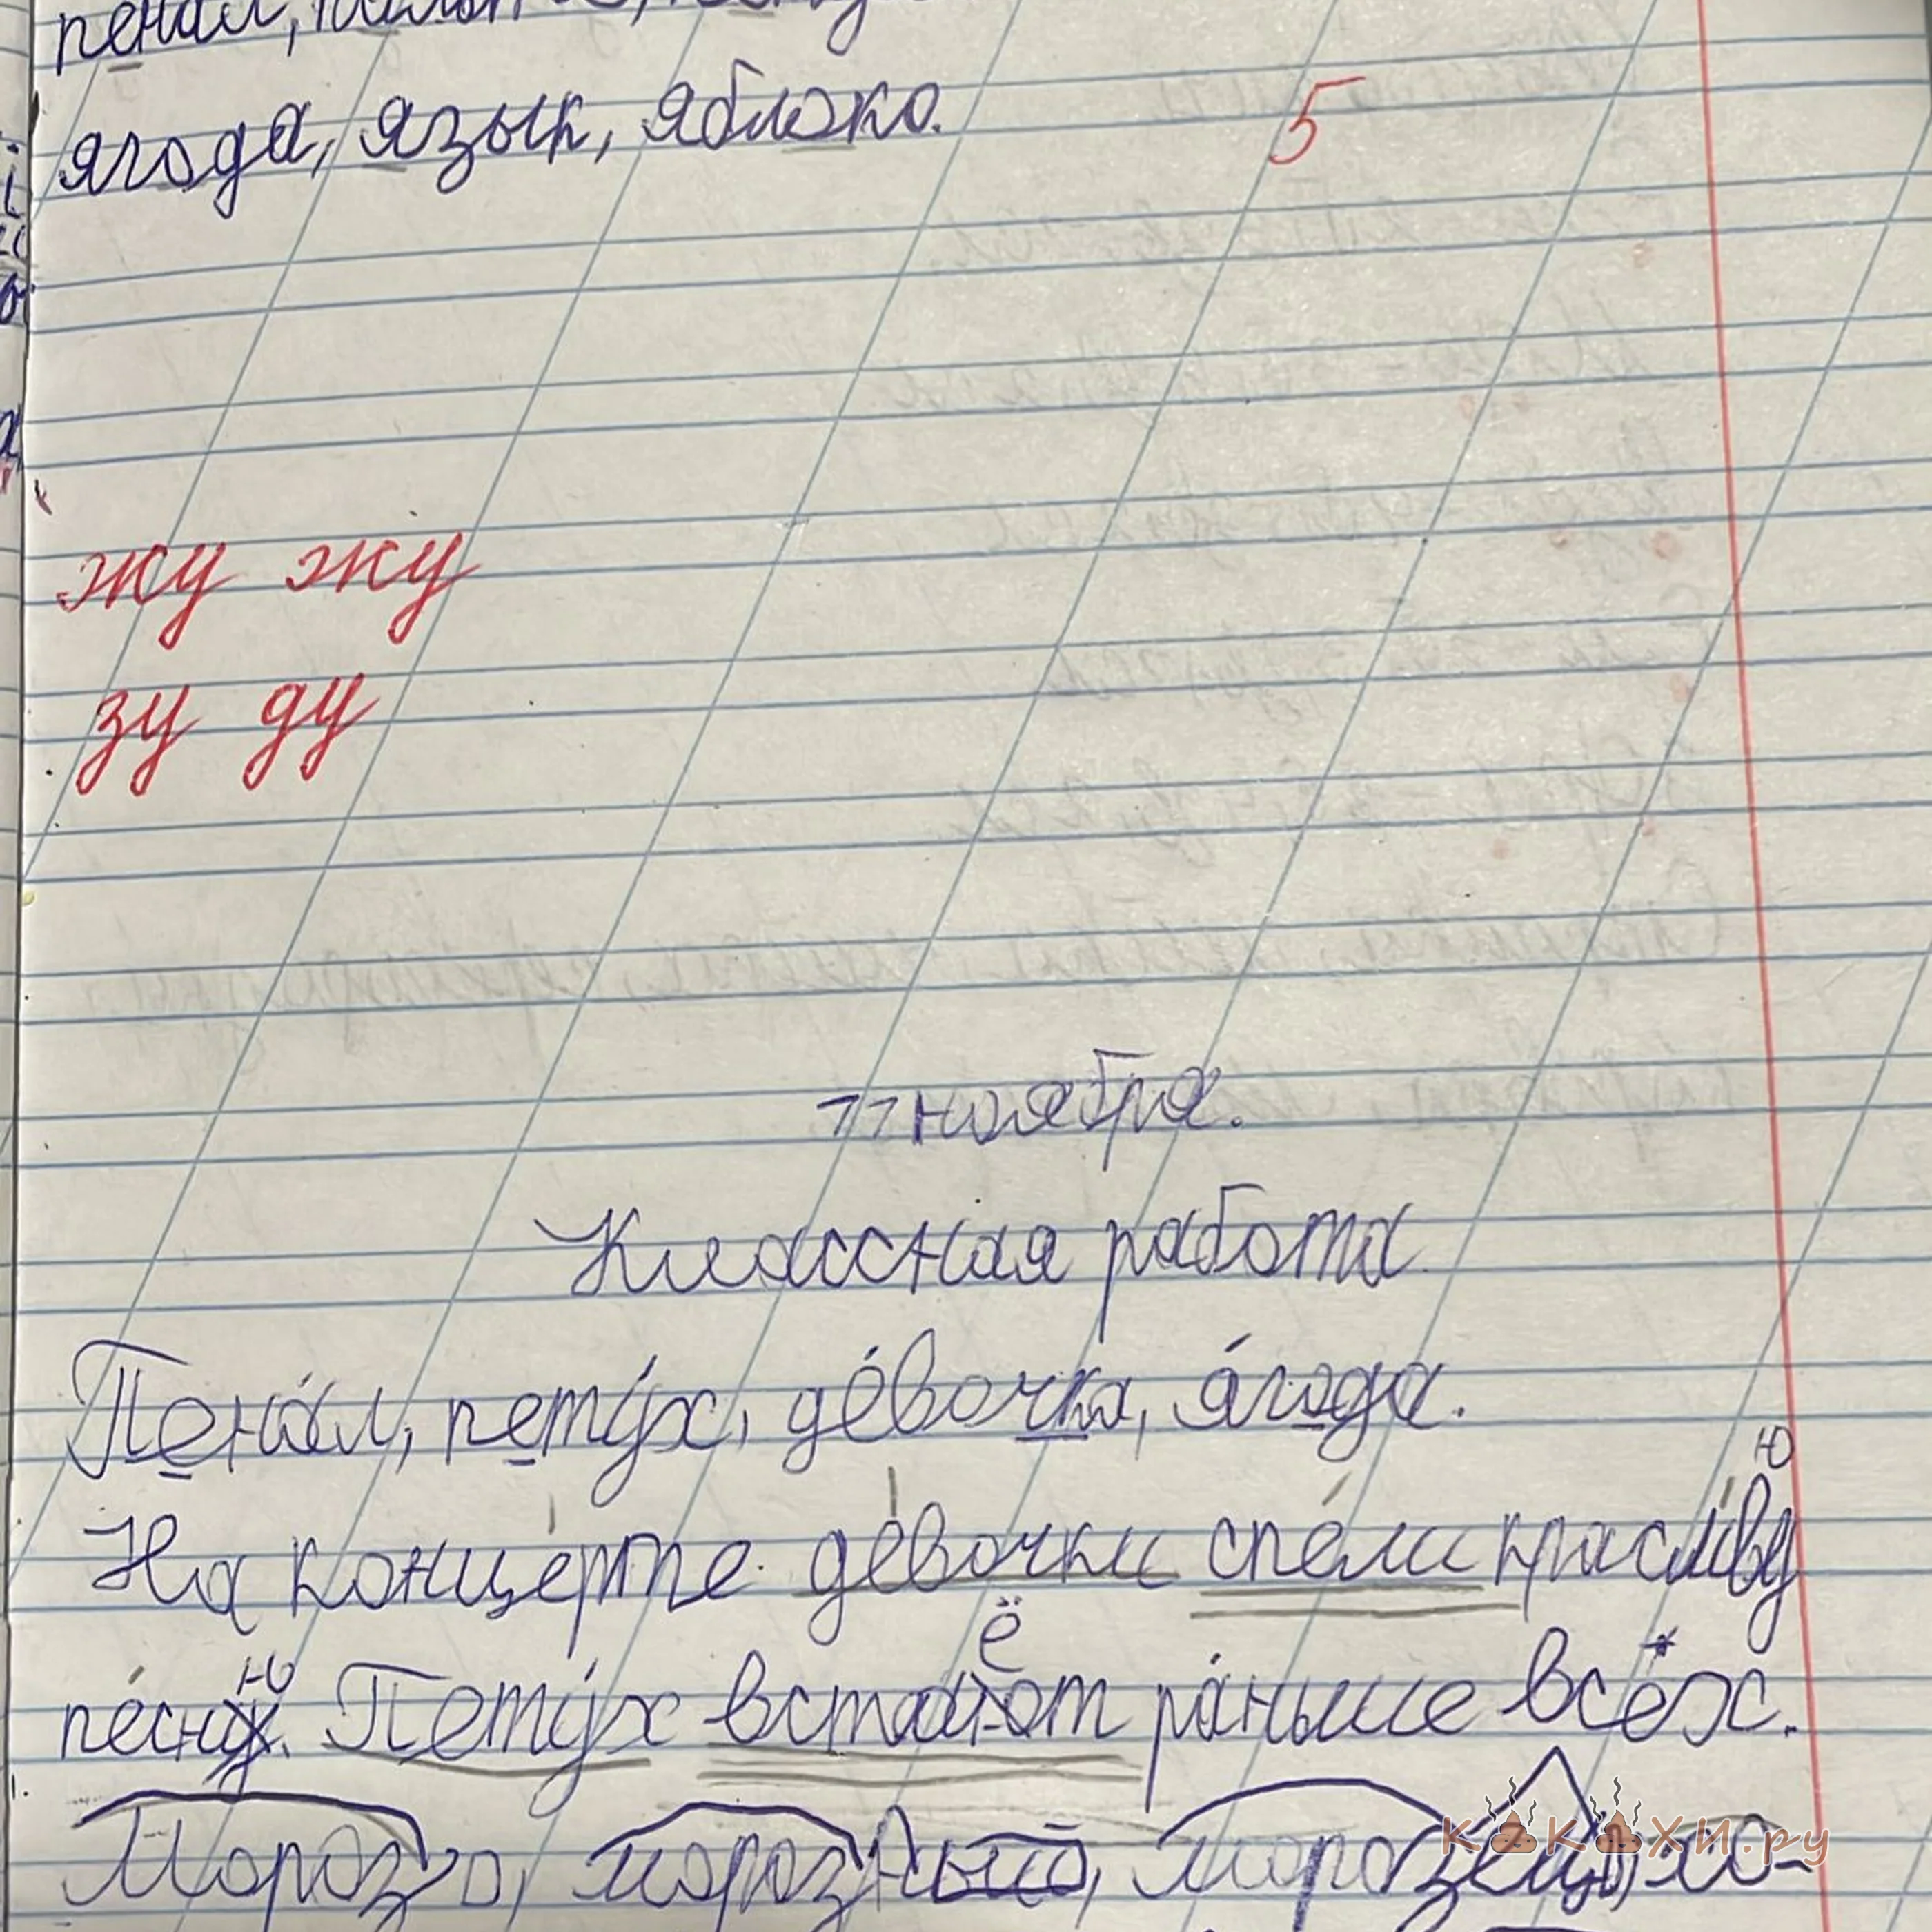 пенал,
ягода, язык, яблоко.
5
жу жу
зу ду
11 ноября.
Классная работа
Пенал, петух, девочка, ягода.
На концерте девочки спели красиву
ю
песню. Петух встаёт раньше всех.
Мороз, морозный, морозец, хо-
КАКАХИ.ру